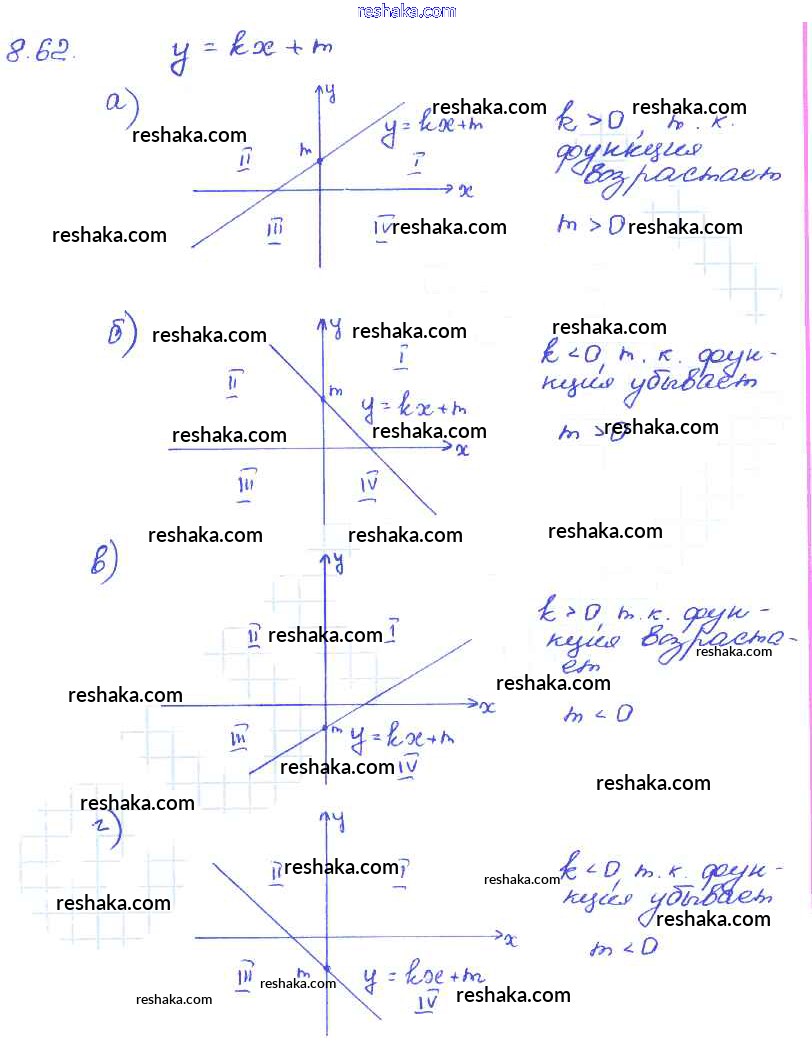 reshaka.com
8.62. y = kx + m
а) y
reshaka.com reshaka.com reshaka.com
y = kx + m k > 0, т. к.
II m I функция
возрастает
x
III IV reshaka.com m > 0 reshaka.com
reshaka.com
б) reshaka.com y reshaka.com reshaka.com
I k < 0, т. к. фун-
II m кция убывает
y = kx + m
reshaka.com reshaka.com m > 0 reshaka.com
x
III IV
reshaka.com reshaka.com reshaka.com
в) y
k > 0, т. к. фун-
II reshaka.com I кция возраста-
reshaka.com
ет
reshaka.com reshaka.com
x m < 0
III m y = kx + m
reshaka.com IV
reshaka.com
reshaka.com
г) y
II reshaka.com I k < 0, т. к. фун-
reshaka.com
reshaka.com кция убывает
reshaka.com
x m < 0
III m y = kx + m
reshaka.com reshaka.com IV reshaka.com